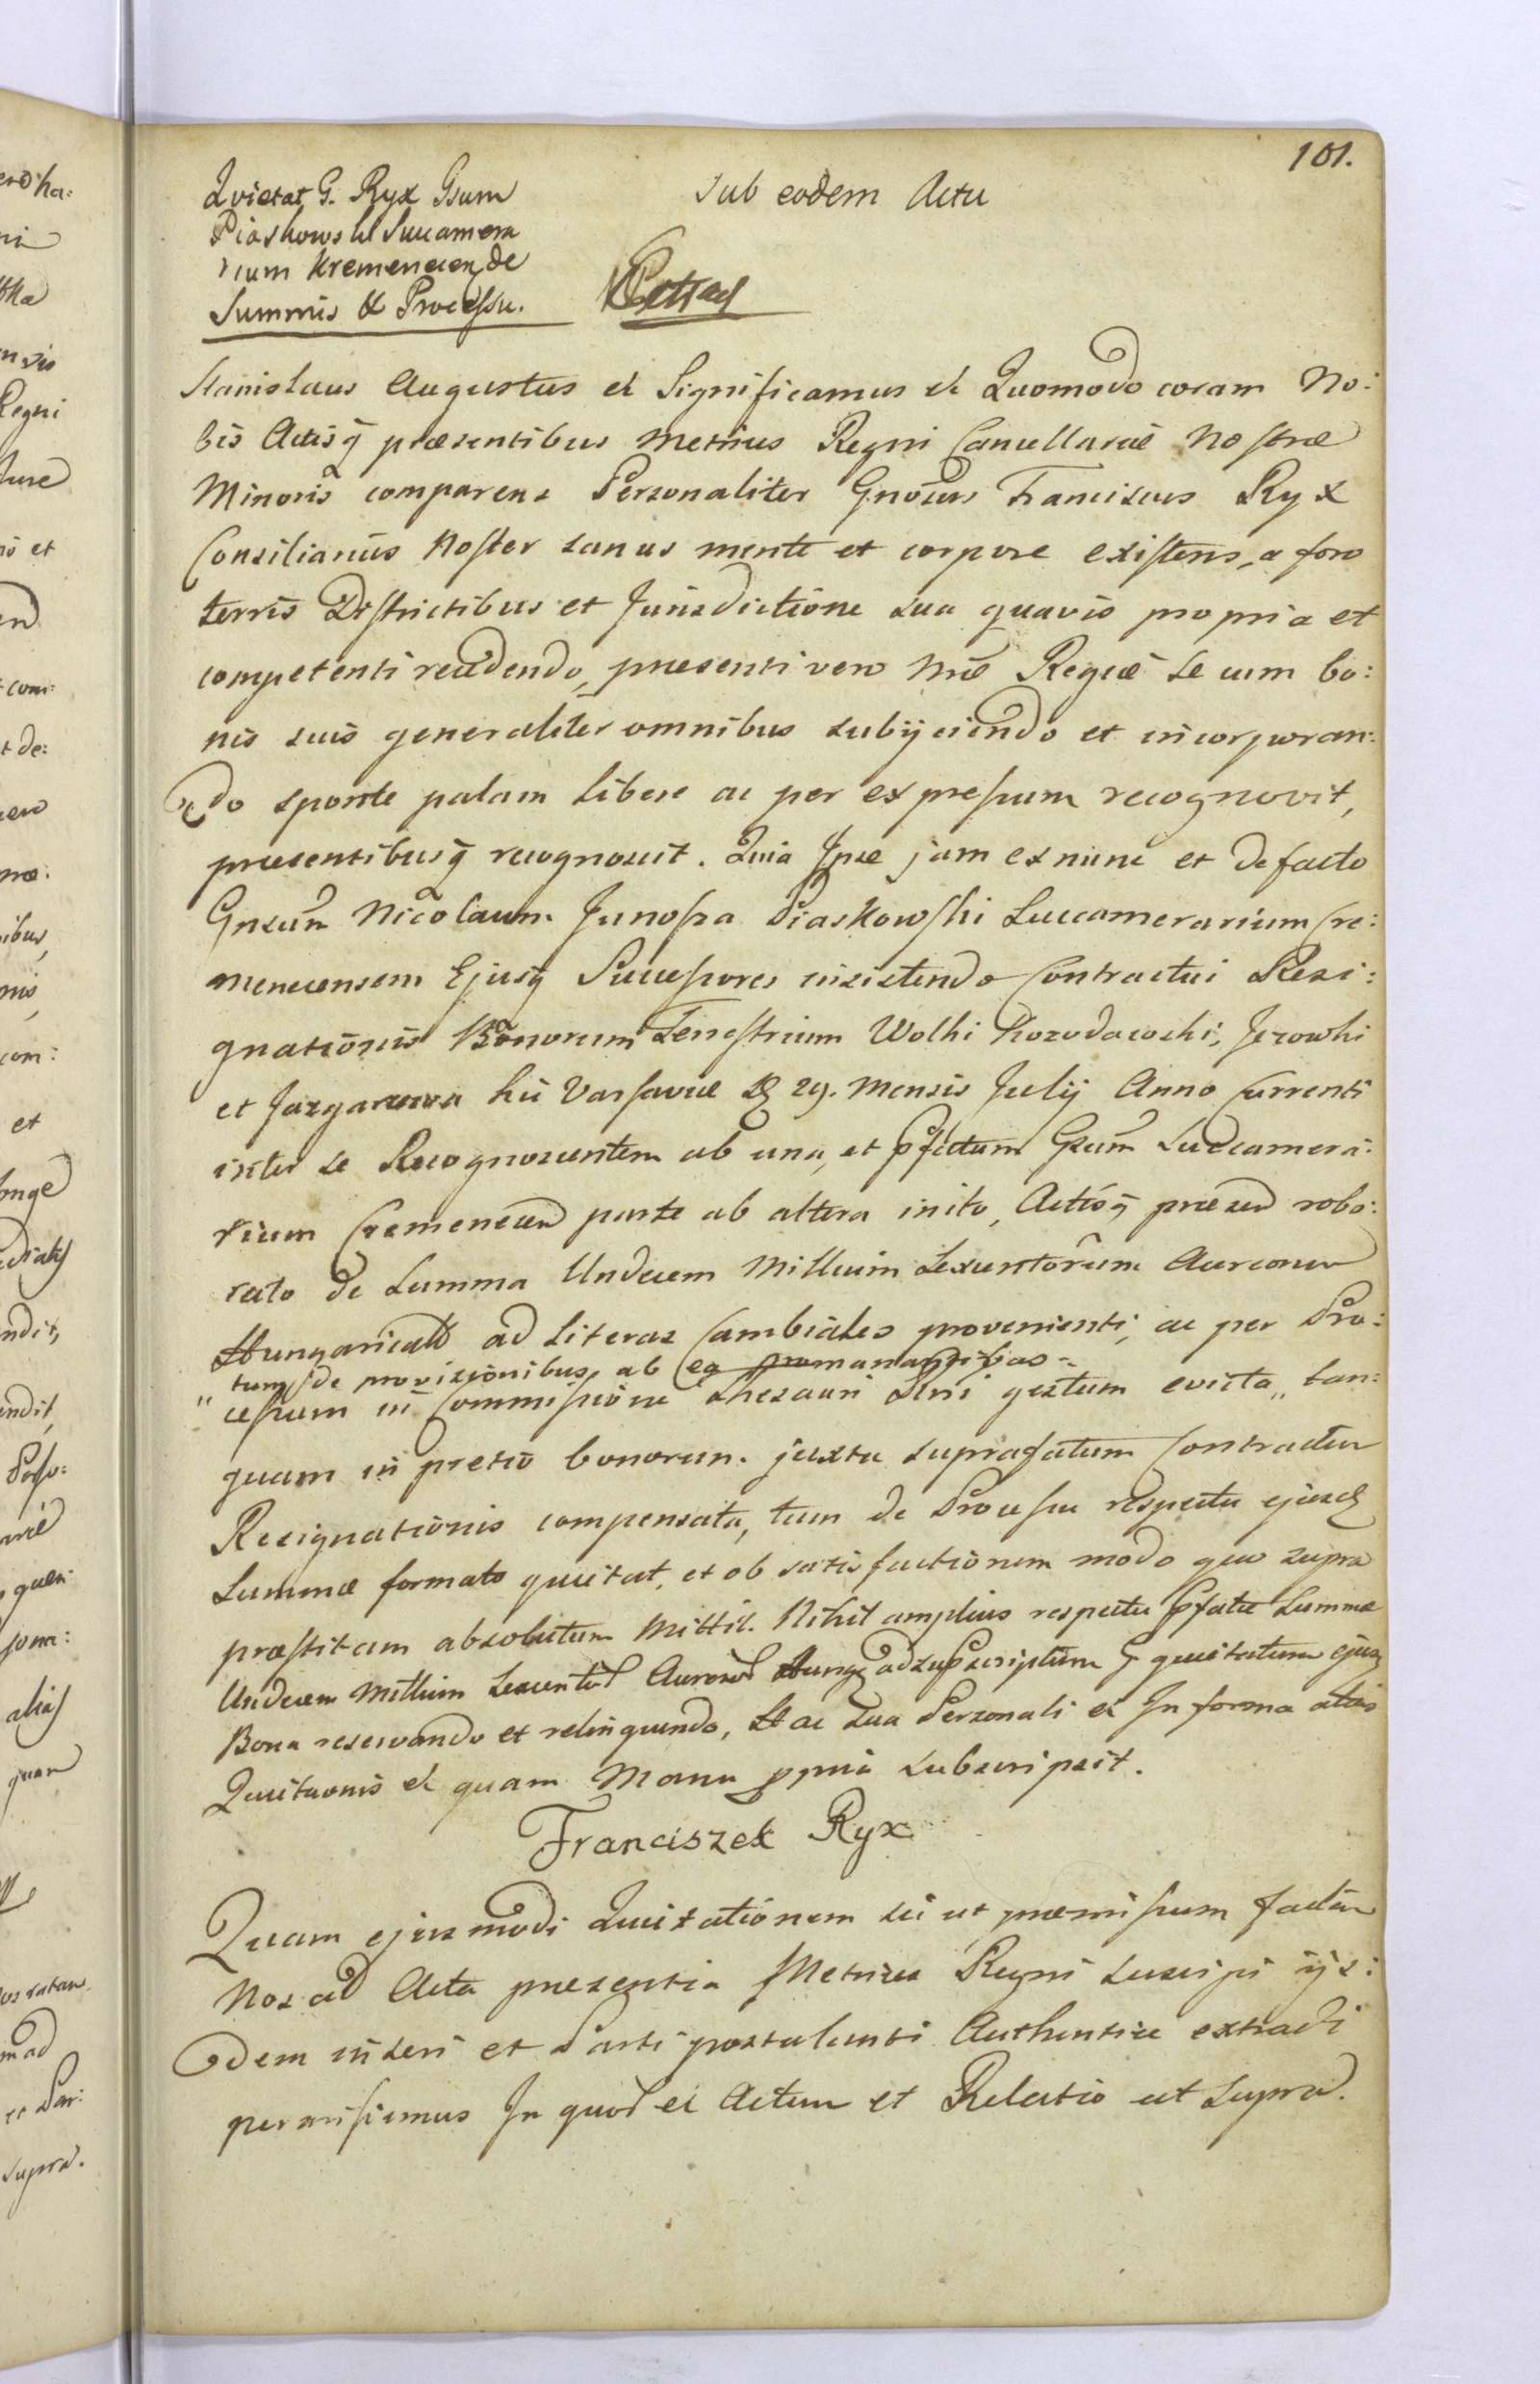 101.
Quietat G. Ryx Gsum
Piaskowski Succamera
rium Kremenecen de
Summis & Processu.
Sub eodem Actu
Extrad
Stanislaus Augustus et Significamus et Quomodo coram No:
bis Actisq̃ præsentibus Metrices Regni Cancellariæ Nostræ
Minoris comparens Personaliter Gnõsus Franciscus Ryx
Consiliarius Noster sanus mente et corpore existens, a foro
terris Districtibus et Jurisdictione sua quavis propria et
competenti recedendo, præsenti vero Mcæ Regiæ se cum bo:
nis suis generaliter omnibus subijciendo et incorporan:
do sponte palam libere ac per expressum recognovit,
præsentibusq̃ recognoscit. Quia Ipse jam ex nunc et de facto
Gnsum Nicolaum Junosza Piaskowski Succamerarium Cre:
menecensem Ejusq̃ Successores insistendo Contractui Resi:
gnationis Bonorum Terrestrium Wolki Kozodawski, Jezowki
et Jazgarzewa hic Varsaviæ D 29. Mensis Julij Anno Currenti
inter se Recognoscentem ab una, et pfatum Gsum Succamera:
rium Cremenecen parte ab altera inito, Actisq̃ præsen robo:
rato de Summa Undecem Millium Sexcentorum Aureorum
Hungarical ad Literas Cambiales provenienti, ac per Pro:
tum de provisionibus, ab ea promanantibus
" cessum in Commissione Thesauri Rni gestum evicta „ tan:
quam in pretio bonorum. juxta suprafatum Contractum
Resignationis compensata, tum de Processu respectu ejusd
Summæ formato quietat, et ob satisfactionem modo quo supra
præstitam absolutum Mittit. Nihil amplius respectu pfatæ Summæ
Undecem Millium Sexcentor Aureor Hung ad supscriptum G quietatum ejusq
Bona reservando et relinquendo, Hac Sua Personali et In forma
Quitaonis et quam Manu ppria subscripsit.
Franciszek Ryx
Quam ejusmodi Quitationem sic ut præmissum factam
Nos ad Acta præsentia Metrices Regni suscipi ijs:
dem inseri et Parti postulanti Authentice extradi
permisimus In quor et Actum et Relatio ut supra.